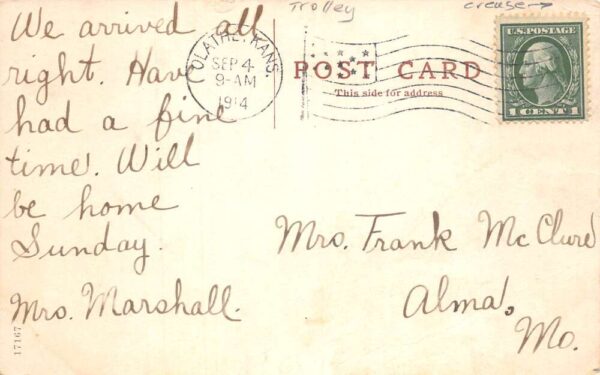 Trolley
crease→
We arrived all
right. Hav
had a fine
time. Will
be home
Sunday.
Mrs. Marshall.
OLATHE, KANS
SEP 4
9-AM
1914
POST CARD
This side for address
U.S. POSTAGE
1 CENT 1
Mrs. Frank McClure
Alma,
Mo.
17167